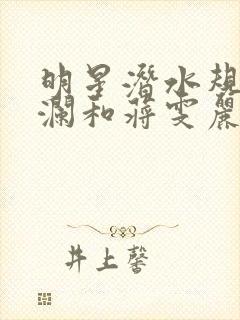 明星潛水規
瀾和蔣雯麗
井上馨